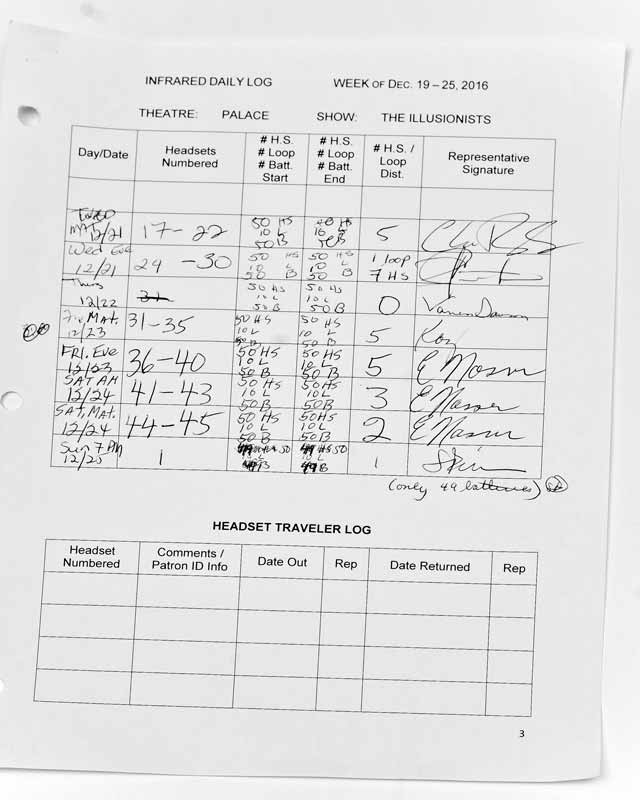 INFRARED DAILY LOG WEEK OF DEC. 19 – 25, 2016
THEATRE: PALACE SHOW: THE ILLUSIONISTS
Day/Date
Headsets
Numbered
# H.S.
# Loop
# Batt.
Start
# H.S.
# Loop
# Batt.
End
# H.S. /
Loop
Dist.
Representative
Signature
12/21 17 - 22 50 HS 10 L 50 B 5
Wed Eve
12/21 24 - 30 50 HS 10 L 50 B 50 HS 10 L 50 B 1 loop
7 HS
Thurs
12/22 31 50 HS 10 L 50 B 50 HS 10 L 50 B 0
Fri Mat.
12/23 31-35 50 HS 10 L 50 B 50 HS 10 L 50 B 5
FRI. Eve
12/23 36-40 50 HS 10 L 50B 50 HS 10 L 50B 5
SAT AM
12/24 41-43 50 HS 10 L 50B 50HS 10 L 50B 3
SAT. Mat.
12/24 44-45 50 HS 10 L 50 B 50HS 10 L 50B 2
Sun 7 PM
12/25 1 50 10 L 49 B HS 50 10 L 49 B 1
(only 49 batteries)
HEADSET TRAVELER LOG
Headset
Numbered
Comments /
Patron ID Info
Date Out
Rep
Date Returned
Rep
3